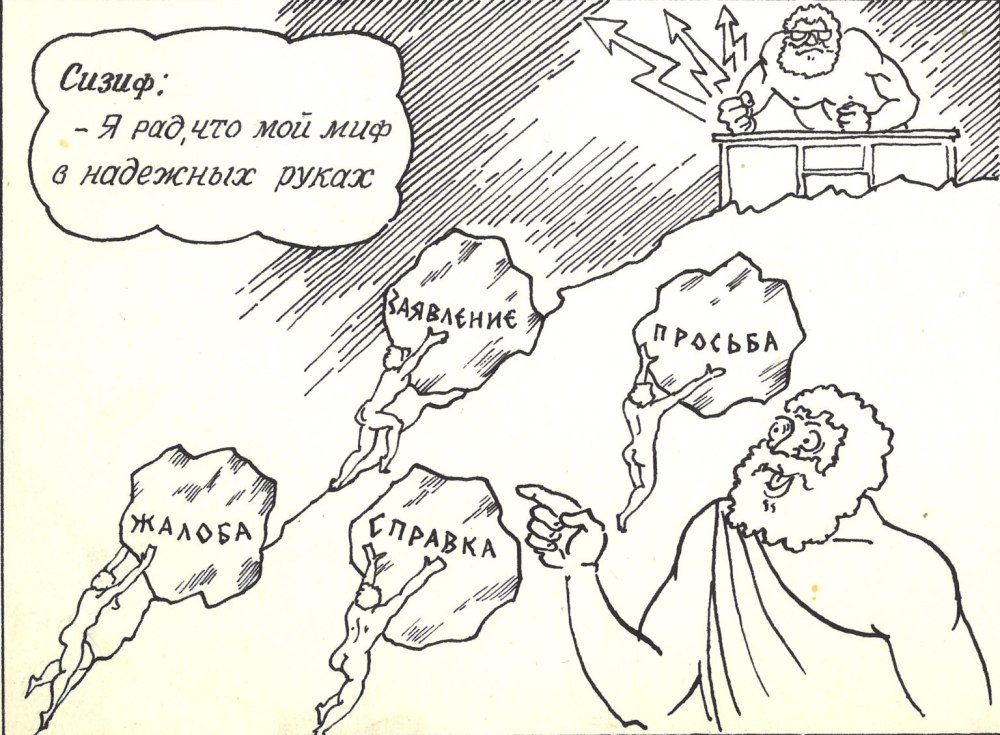 Сизиф:
- Я рад, что мой миф
в надежных руках
ЗАЯВЛЕНИЕ
ПРОСЬБА
ЖАЛОБА
СПРАВКА